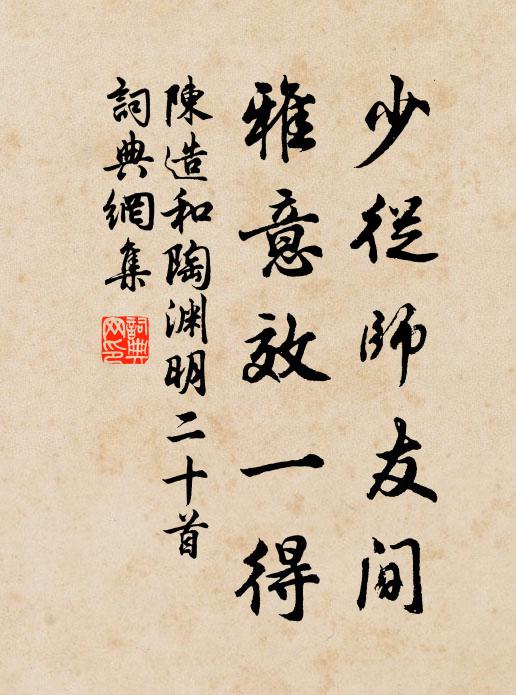 少從師友間
雅意效一得
陳造和陶淵明二十首
詞典網集
詞典網印